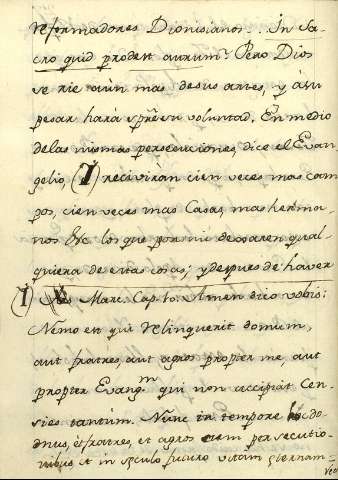 reformadores Dionisianos... In Sa-
cro quid prodest aurum? Pero Dios
se rie aùn mas de sus artes, y à su
pesar hará sp̃re su voluntad, En medio
de las mismas persecuciones, dice el Evan-
gelio, (I) reciviran cien veces mas cam-
pos, cien veces mas Casas, mas herma-
nos &c los que por mi dexaren qual-
quiera de estas cosas; y despues de haver
(I) Marc. Cap. 10. Amen dico vobis:
Nemo est qui reliquerit domum,
aut fratres, aut agros propter me, aut
propter Evangm qui non accipiat Cen-
sies tantum. Nunc in tempore hoc do-
mus, et fratres, et agros cum persecutio-
nibus, et in sęculo futuro vitam ęternam-